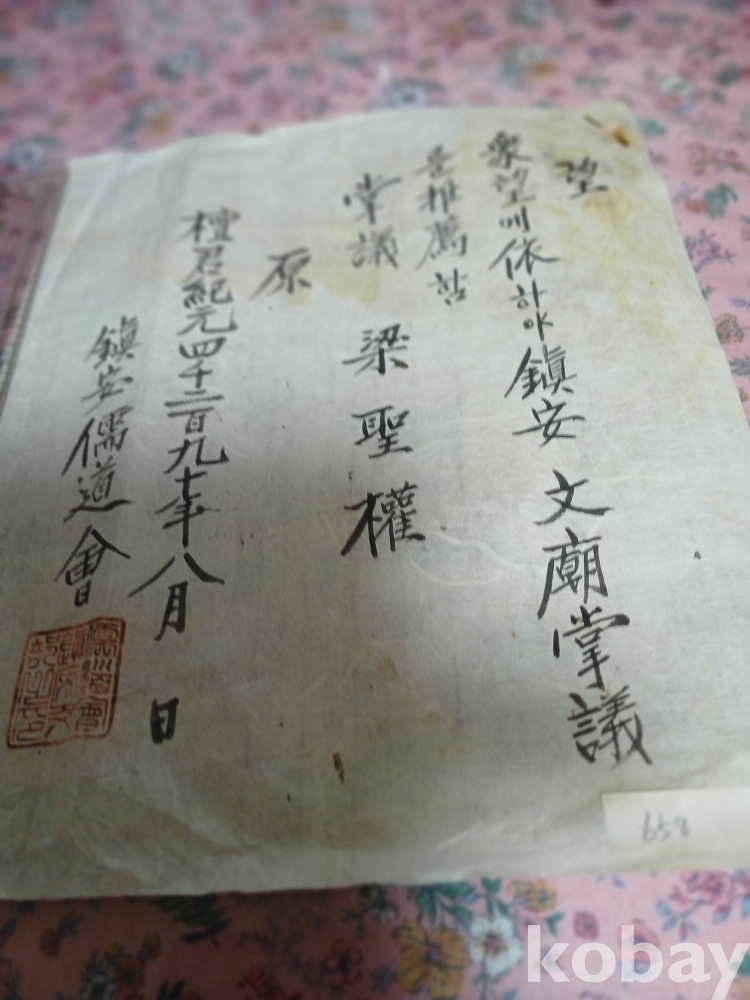 望
衆望에 依하야 鎭安 文廟掌議
로 推薦함
掌議 梁聖權
原
檀君紀元四千二百九十年八月 日
鎭安儒道會
658
kobay